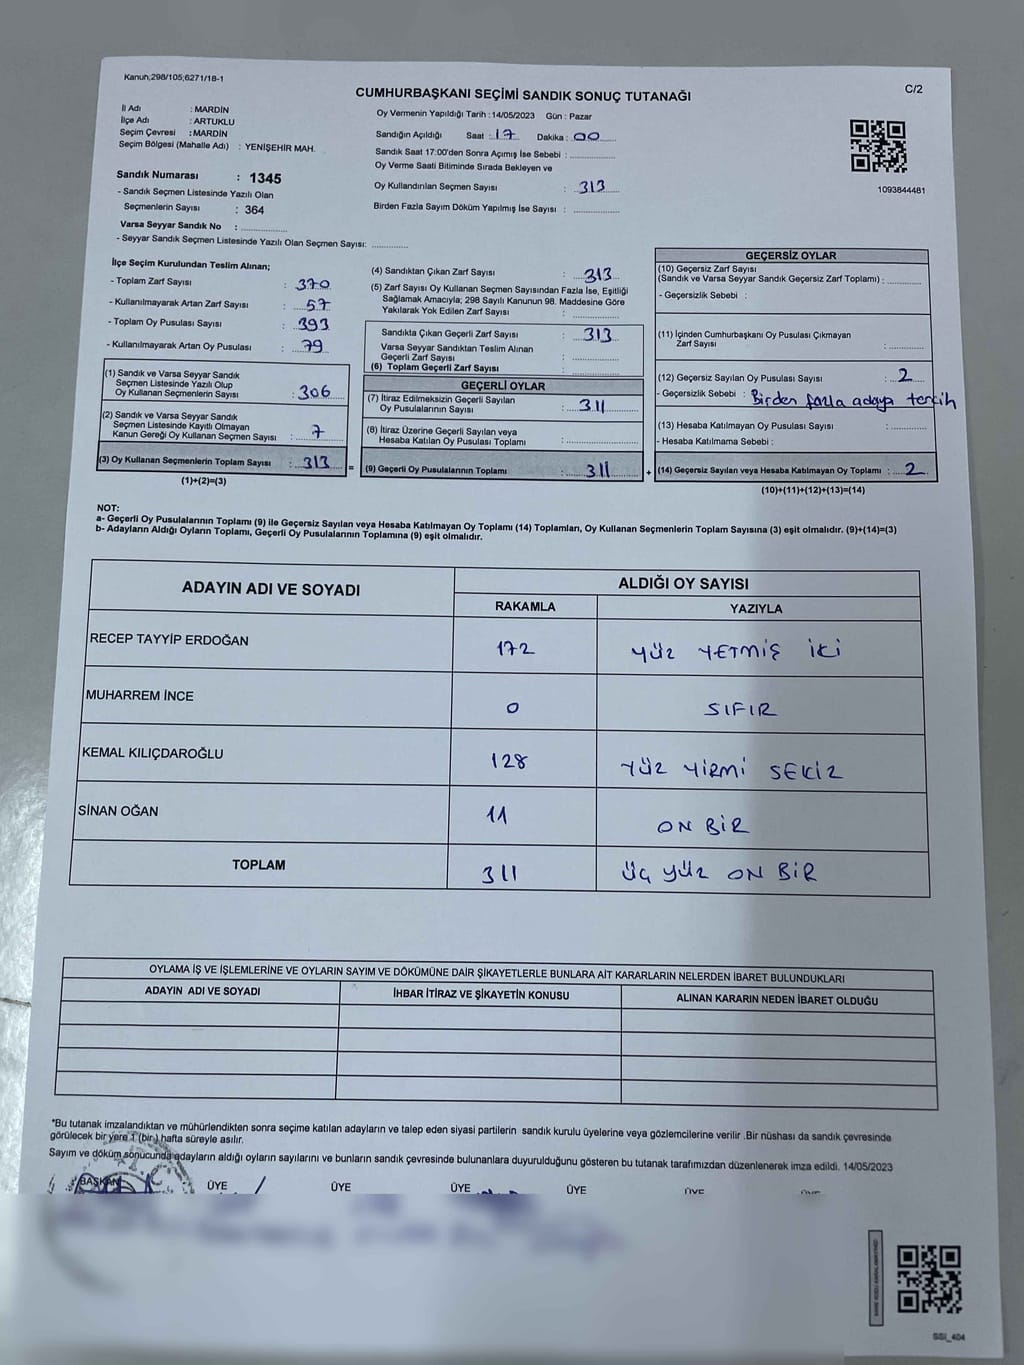 Kanun;298/105;6271/18-1
C/2
CUMHURBAŞKANI SEÇİMİ SANDIK SONUÇ TUTANAĞI
İl Adı : MARDİN
İlçe Adı : ARTUKLU
Seçim Çevresi : MARDİN
Seçim Bölgesi (Mahalle Adı) : YENİŞEHİR MAH.
Sandık Numarası : 1345
- Sandık Seçmen Listesinde Yazılı Olan
Seçmenlerin Sayısı : 364
Varsa Seyyar Sandık No :
- Seyyar Sandık Seçmen Listesinde Yazılı Olan Seçmen Sayısı:
Oy Vermenin Yapıldığı Tarih : 14/05/2023 Gün : Pazar
Sandığın Açıldığı Saat : 17 Dakika : 00
Sandık Saat 17:00'den Sonra Açımış İse Sebebi :
Oy Verme Saati Bitiminde Sırada Bekleyen ve
Oy Kullandırılan Seçmen Sayısı : 313
Birden Fazla Sayım Döküm Yapılmış İse Sayısı :
1093844481
İlçe Seçim Kurulundan Teslim Alınan;
- Toplam Zarf Sayısı : 370
- Kullanılmayarak Artan Zarf Sayısı : 57
- Toplam Oy Pusulası Sayısı : 393
- Kullanılmayarak Artan Oy Pusulası : 79
(1) Sandık ve Varsa Seyyar Sandık
Seçmen Listesinde Yazılı Olup
Oy Kullanan Seçmenlerin Sayısı : 306
(2) Sandık ve Varsa Seyyar Sandık
Seçmen Listesinde Kayıtlı Olmayan
Kanun Gereği Oy Kullanan Seçmen Sayısı : 7
(3) Oy Kullanan Seçmenlerin Toplam Sayısı : 313
(1)+(2)=(3)
=
(4) Sandıktan Çıkan Zarf Sayısı : 313
(5) Zarf Sayısı Oy Kullanan Seçmen Sayısından Fazla İse, Eşitliği
Sağlamak Amacıyla; 298 Sayılı Kanunun 98. Maddesine Göre
Yakılarak Yok Edilen Zarf Sayısı :
Sandıkta Çıkan Geçerli Zarf Sayısı : 313
Varsa Seyyar Sandıktan Teslim Alınan
Geçerli Zarf Sayısı :
(6) Toplam Geçerli Zarf Sayısı :
GEÇERLİ OYLAR
(7) İtiraz Edilmeksizin Geçerli Sayılan
Oy Pusulalarının Sayısı : 311
(8) İtiraz Üzerine Geçerli Sayılan veya
Hesaba Katılan Oy Pusulası Toplamı :
(9) Geçerli Oy Pusulalarının Toplamı : 311
+
GEÇERSİZ OYLAR
(10) Geçersiz Zarf Sayısı
(Sandık ve Varsa Seyyar Sandık Geçersiz Zarf Toplamı) :
- Geçersizlik Sebebi :
(11) İçinden Cumhurbaşkanı Oy Pusulası Çıkmayan
Zarf Sayısı :
(12) Geçersiz Sayılan Oy Pusulası Sayısı : 2
- Geçersizlik Sebebi : Birden fazla adaya tercih
(13) Hesaba Katılmayan Oy Pusulası Sayısı :
- Hesaba Katılmama Sebebi :
(14) Geçersiz Sayılan veya Hesaba Katılmayan Oy Toplamı : 2
(10)+(11)+(12)+(13)=(14)
NOT:
a- Geçerli Oy Pusulalarının Toplamı (9) ile Geçersiz Sayılan veya Hesaba Katılmayan Oy Toplamı (14) Toplamları, Oy Kullanan Seçmenlerin Toplam Sayısına (3) eşit olmalıdır. (9)+(14)=(3)
b- Adayların Aldığı Oyların Toplamı, Geçerli Oy Pusulalarının Toplamına (9) eşit olmalıdır.
ADAYIN ADI VE SOYADI ALDIĞI OY SAYISI
RAKAMLA YAZIYLA
RECEP TAYYİP ERDOĞAN 172 YÜZ YETMİŞ İKİ
MUHARREM İNCE 0 SIFIR
KEMAL KILIÇDAROĞLU 128 YÜZ YİRMİ SEKİZ
SİNAN OĞAN 11 ON BİR
TOPLAM 311 ÜÇ YÜZ ON BİR
OYLAMA İŞ VE İŞLEMLERİNE VE OYLARIN SAYIM VE DÖKÜMÜNE DAİR ŞİKAYETLERLE BUNLARA AİT KARARLARIN NELERDEN İBARET BULUNDUKLARI
ADAYIN ADI VE SOYADI İHBAR İTİRAZ VE ŞİKAYETİN KONUSU ALINAN KARARIN NEDEN İBARET OLDUĞU
*Bu tutanak imzalandıktan ve mühürlendikten sonra seçime katılan adayların ve talep eden siyasi partilerin sandık kurulu üyelerine veya gözlemcilerine verilir .Bir nüshası da sandık çevresinde
görülecek bir yere 1 (bir) hafta süreyle asılır.
Sayım ve döküm sonucunda adayların aldığı oyların sayılarını ve bunların sandık çevresinde bulunanlara duyurulduğunu gösteren bu tutanak tarafımızdan düzenlenerek imza edildi. 14/05/2023
BAŞKAN ÜYE ÜYE ÜYE ÜYE ÜYE ÜYE
SSI_404